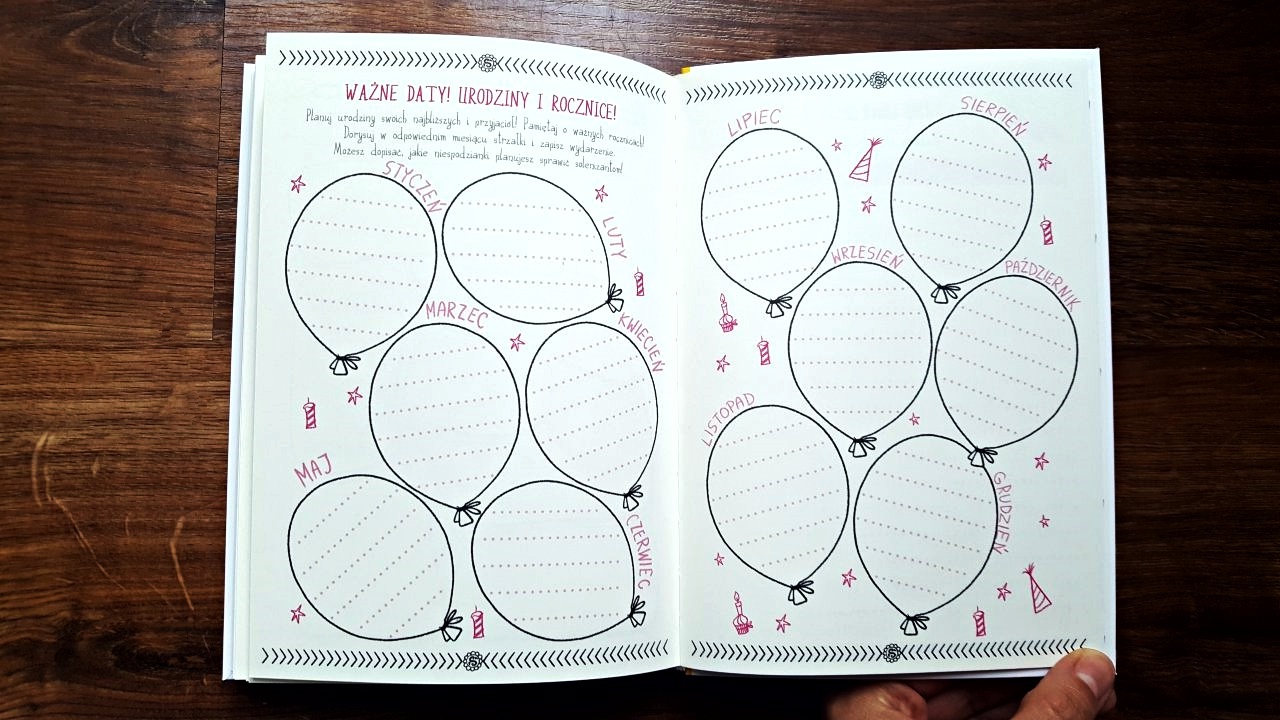 WAŻNE DATY! URODZINY I ROCZNICE!
Planuj urodziny swoich najbliższych i przyjaciół! Pamiętaj o ważnych rocznicach!
Dorysuj w odpowiednim miesiącu strzałki i zapisz wydarzenie.
Możesz dopisać, jakie niespodzianki planujesz sprawić solenizantom!
STYCZEŃ
LUTY
MARZEC
KWIECIEŃ
MAJ
CZERWIEC
LIPIEC
SIERPIEŃ
WRZESIEŃ
PAŹDZIERNIK
LISTOPAD
GRUDZIEŃ